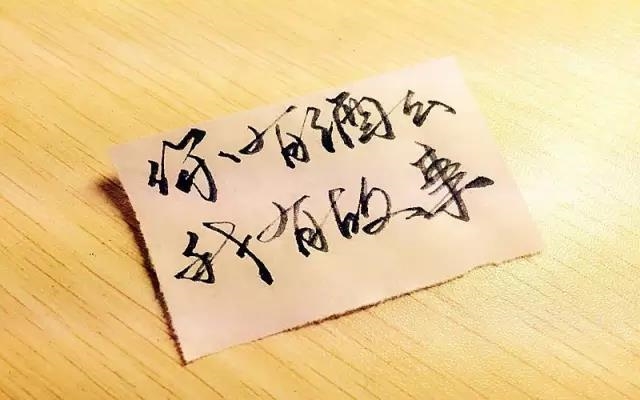 你有酒么
我有故事